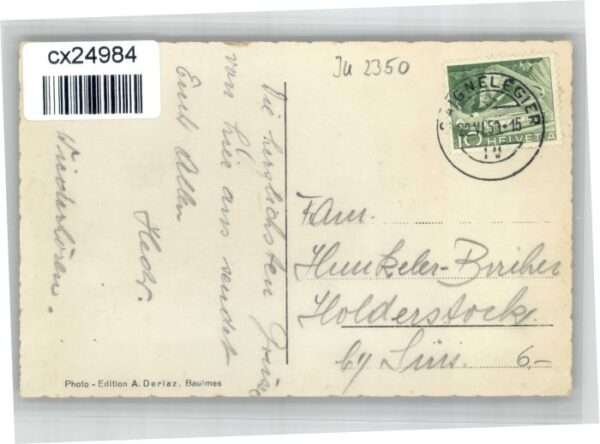 cx24984
Ju 2350
SAIGNELÉGIER
VI.50-15
10 HELVETIA
Die herzlichsten Grüsse
von hier aus sendet
Euch Allen
Hedi.
Wiederhören.
Fam.
Hunkeler-Bircher
Holderstock
by Sins.
6.-
Photo - Edition A. Deriaz, Baulmes